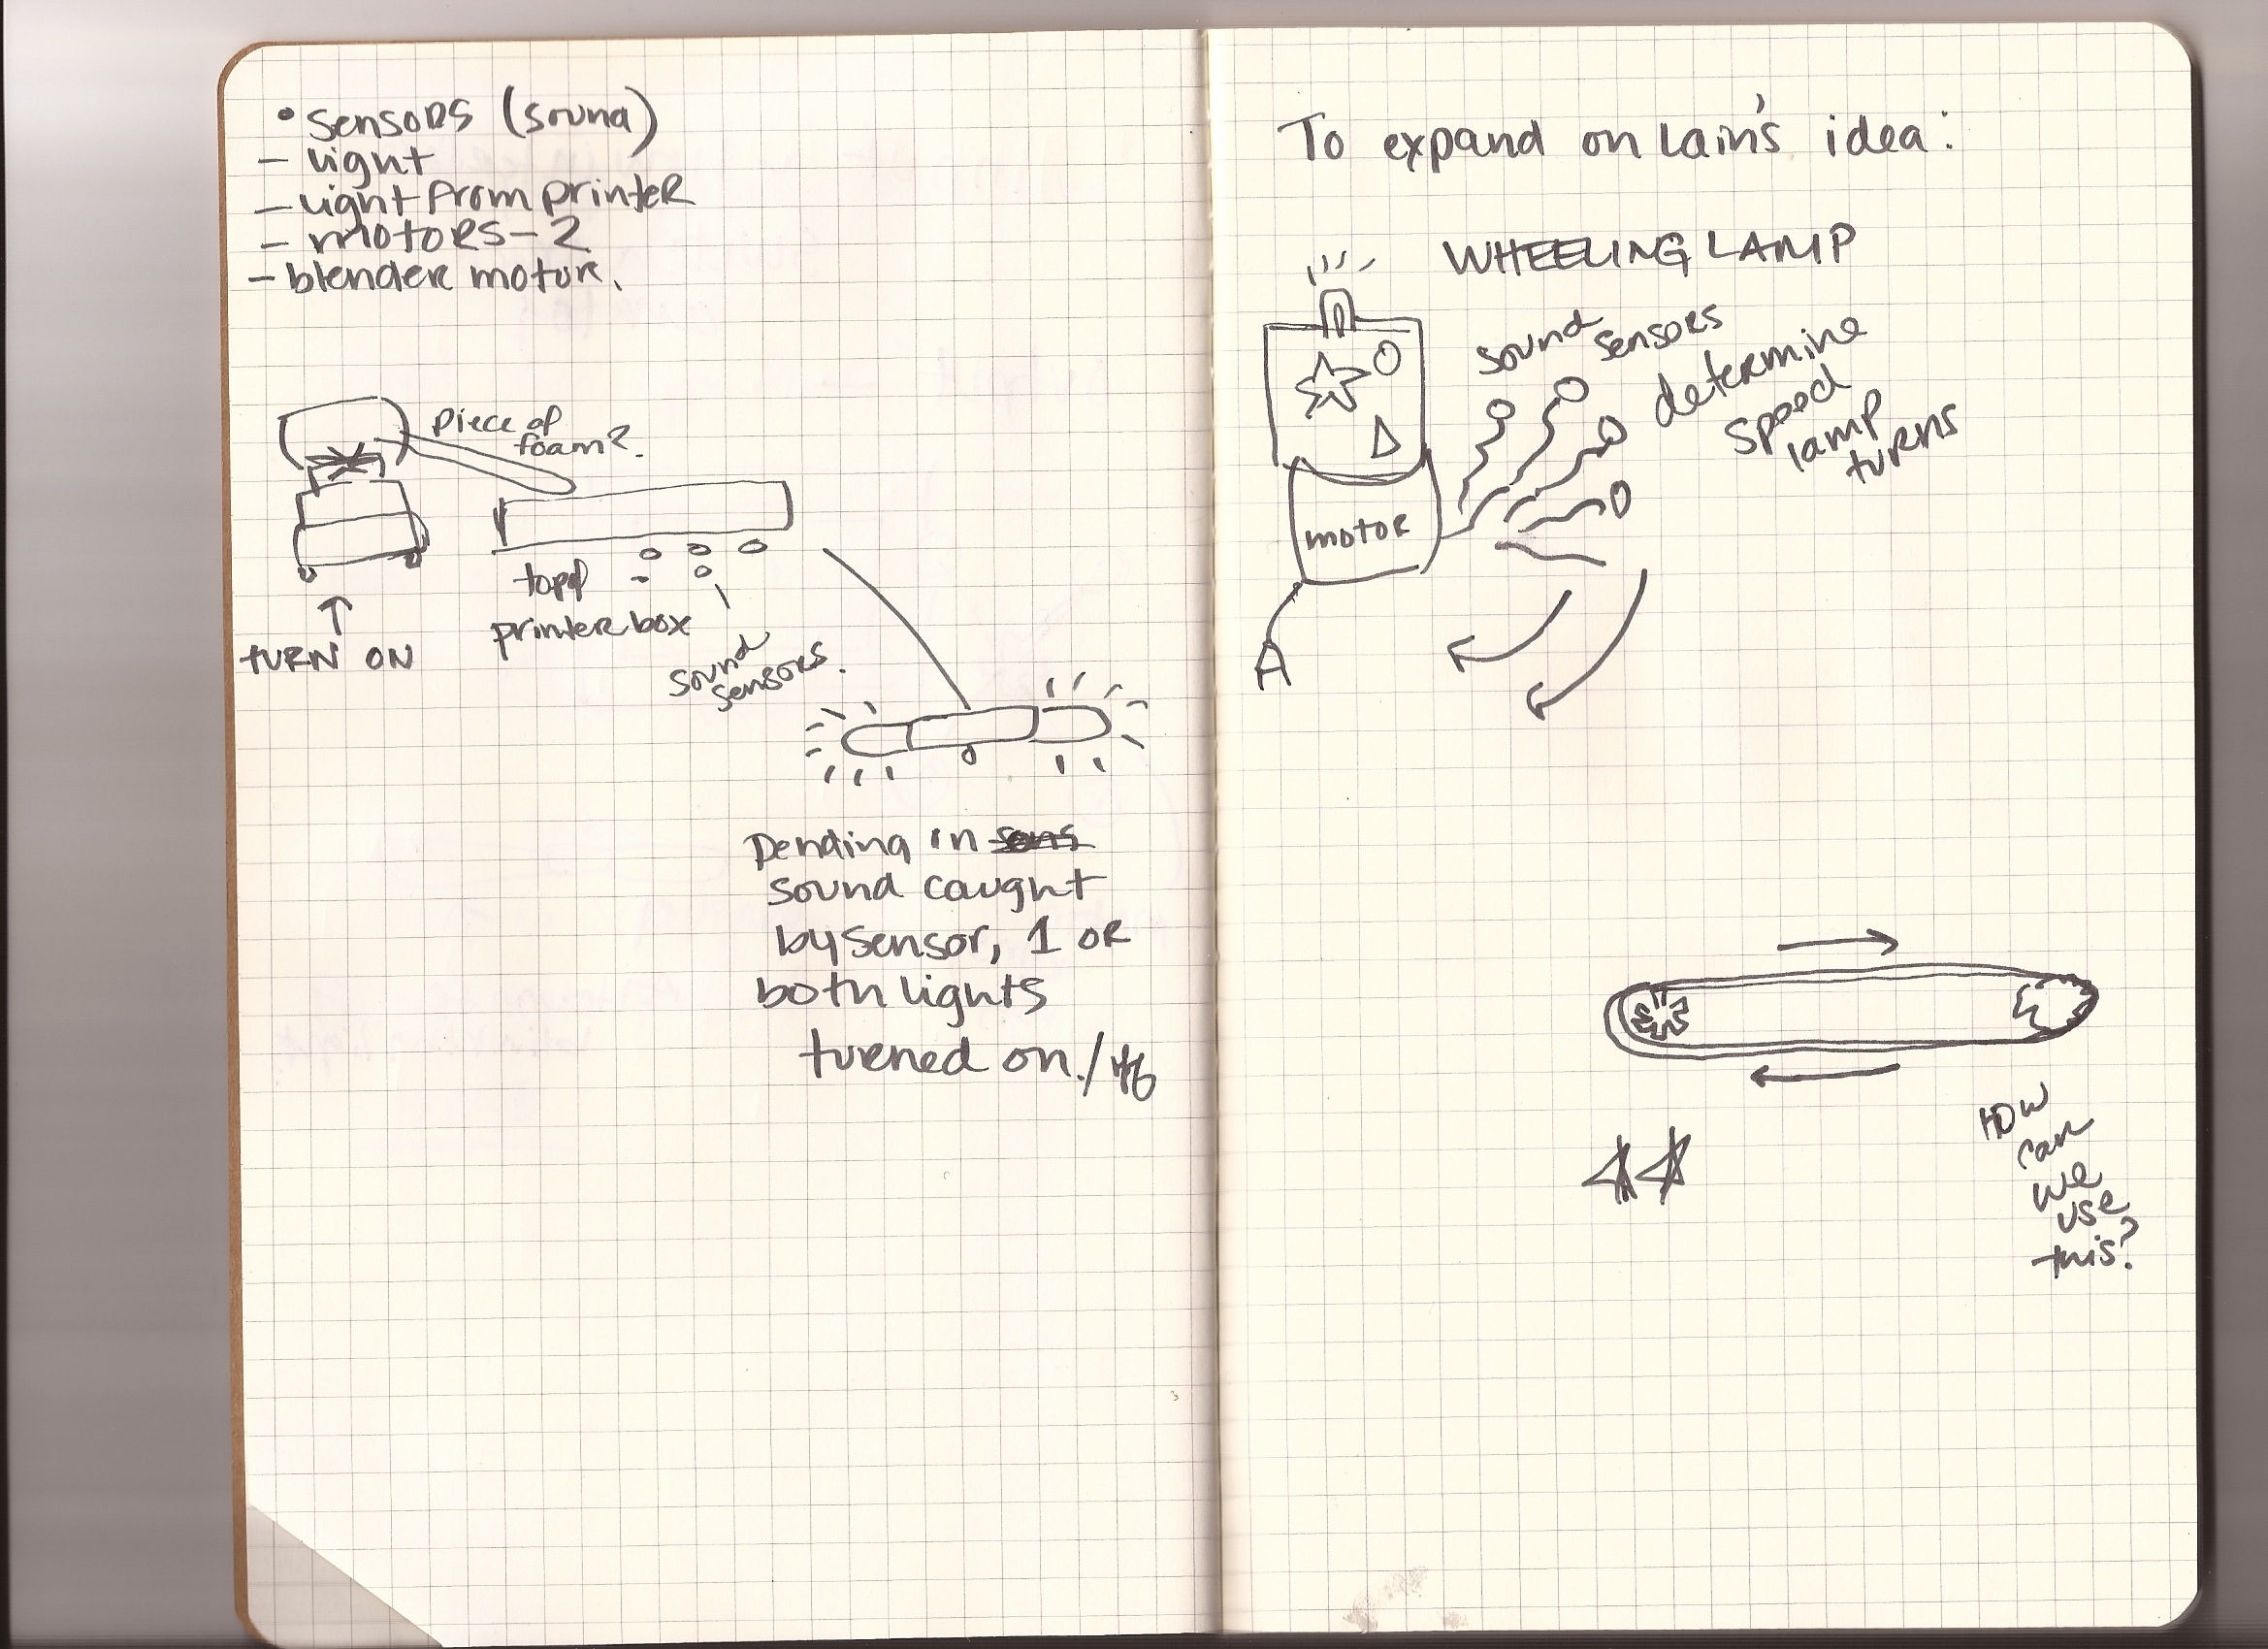 • Sensors (sound)
- light
- light from printer
- motors-2
- blender motor.
piece of
foam?
top of
printer box
TURN ON
sound
sensors.
Pending in sens
sound caught
by sensor, 1 or
both lights
turned on./
To expand on Lain's idea:
WHEELING LAMP
sound sensors
determine
speed
lamp
turns
motor
A
How
can
we
use
this?